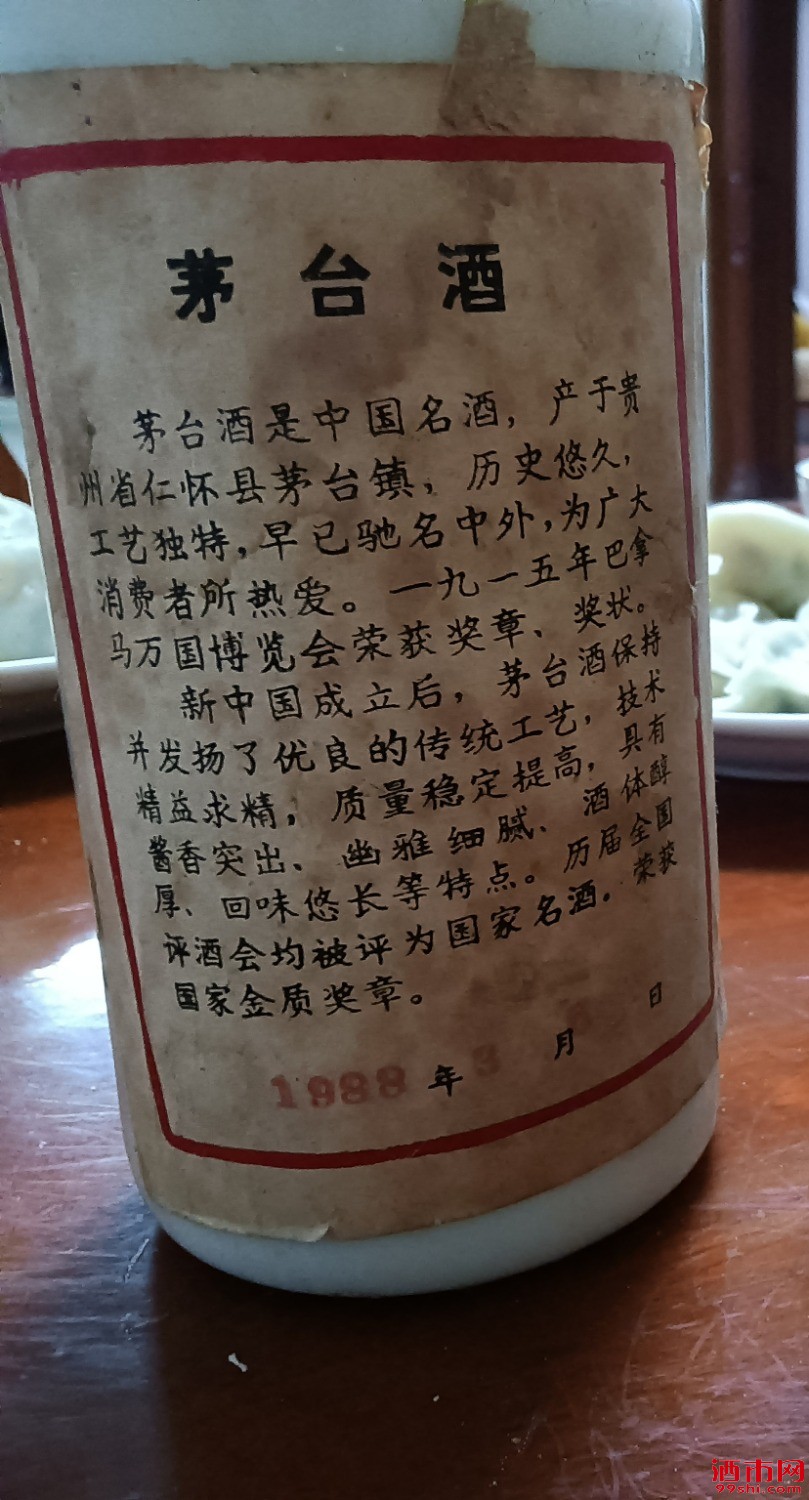 茅台酒
茅台酒是中国名酒，产于贵
州省仁怀县茅台镇，历史悠久，
工艺独特，早已驰名中外，为广大
消费者所热爱。一九一五年巴拿
马万国博览会荣获奖章、奖状。
新中国成立后，茅台酒保持
并发扬了优良的传统工艺，技术
精益求精，质量稳定提高，具有
酱香突出、幽雅细腻、酒体醇
厚、回味悠长等特点。历届全国
评酒会均被评为国家名酒.荣获
国家金质奖章。
1988年3月 日
酒市网
99shi.com